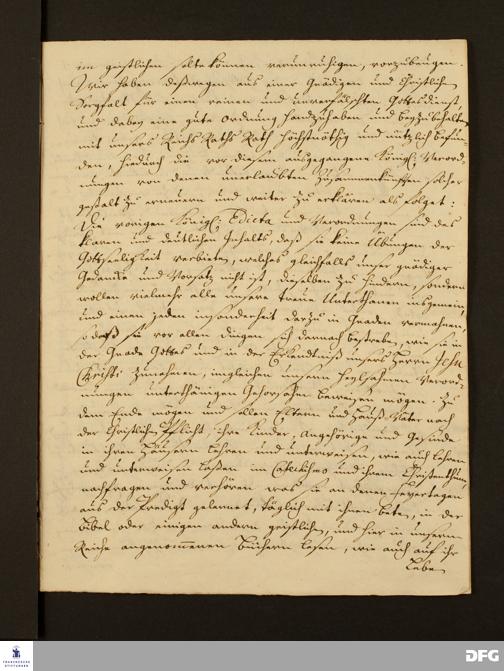 im geistlichen selte können verunruhigen, vorzubeugen.
Wir haben deßwegen aus einer Gnädigen und Christlichen
Sorgfalt für einen reinen und unverfälschten Gottesdienst,
und dabey eine gute Ordnung handzuhaben und beyzubehalten
mit unsers Reichs Raths Rath höchstnöthig und nützlich befun-
den, hiedurch die vor diesem ausgegangene Königl: Verord-
nungen von denen unerlaubten Zusammenkünfften solcher
gestalt zu erneuern und weiter zu erklären als folget:
Die vorigen Königl: Edicta und Verordnungen sind des
klaren und deutlichen Inhalts, daß sie keine Übungen der
Gottseeligkeit verbieten, welches gleichfalls unser gnädiger
Gedancke und Vorsatz nicht ist, dieselben zu hindern, sondern
wollen vielmehr alle unsere treue Unterthanen insgemein,
und einen jeden insonderheit darzu in Gnaden vermahnen,
so daß sie vor allen dingen sich darnach bestreben, wie sie in
der Gnade Gottes und in der Erkändtniß unsers Herrn Jesu
Christi zunehmen, imgleichen unsern heylsahmen Verord-
nungen unterthänigen Gehorsahm beweisen mögen. Zu
dem Ende mögen und sollen Eltern und Hauß-Väter nach
der Christlichen Pflicht ihre Kinder, Angehörige und Gesinde
in ihren Häusern lehren und unterweisen, wie auch lehren
und unterweisen laßen im Catechismo und ihrem Christenthum,
nachfragen und verhören was sie an denen Feyertagen
aus der Predigt gelernet, täglich mit ihnen beten, in der
Bibel oder einigen andern geistlichen, und hier in unserm
Reiche angenommenen Büchern lesen, wie auch auf ihr
Lebe
FRANCKESCHE
STIFTUNGEN
DFG